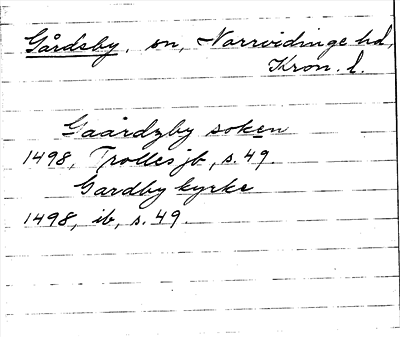 Gårdsby, sn, Norrvidinge hd,
Kron. l.
Gaardzby soken
1498, Trolles jb, s. 49.
Gardby kyrke
1498, ib, s. 49.